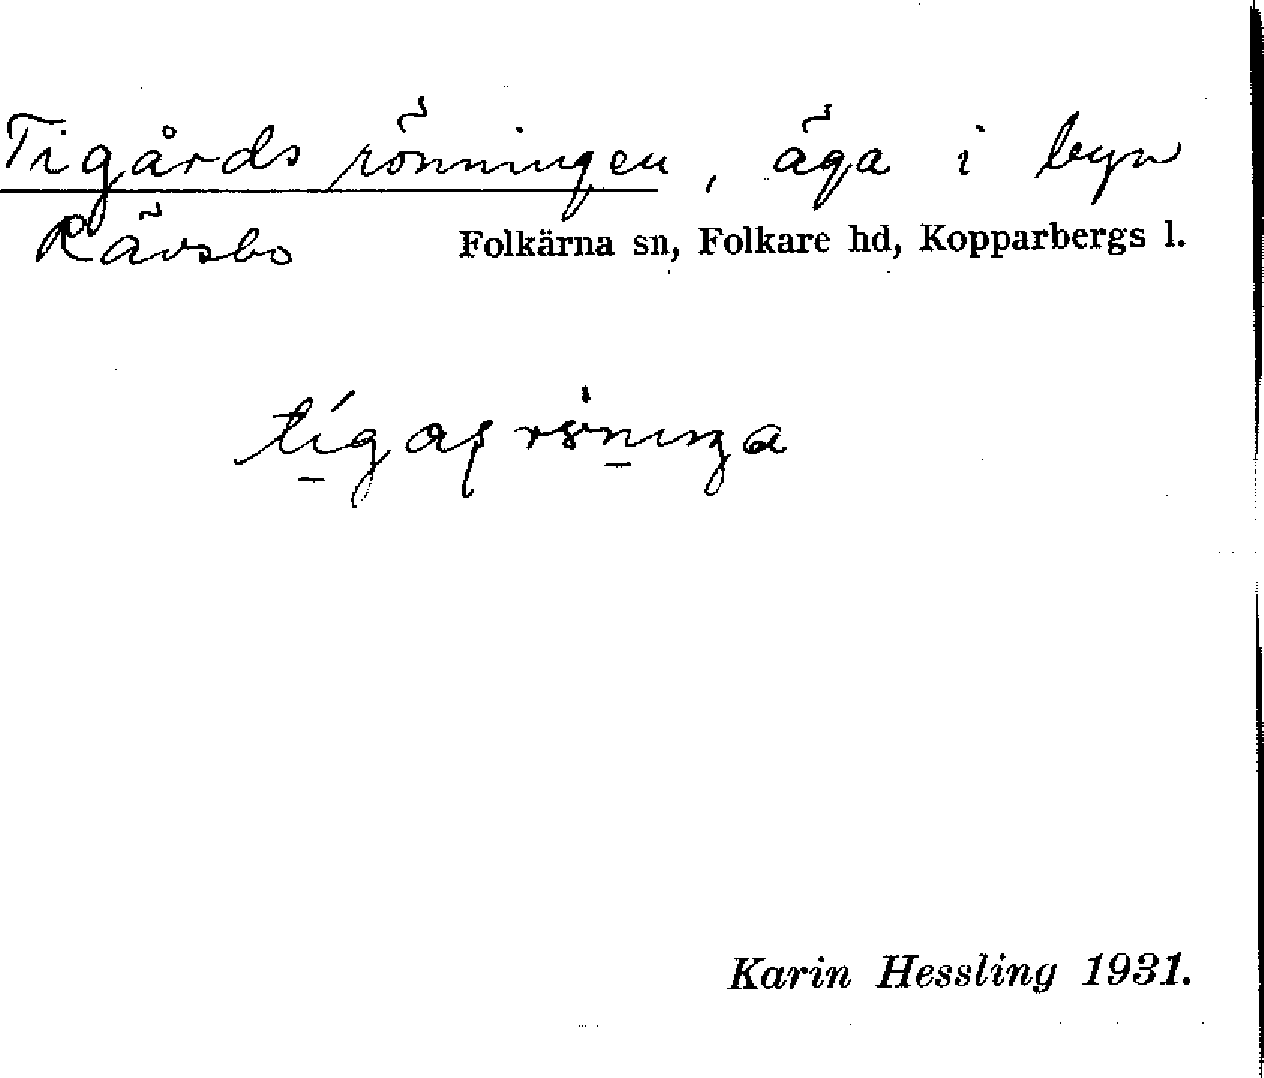 Tigårds rönningen, äga i byn
Rävsbo Folkärna sn, Folkare hd, Kopparbergs l.
Karin Hessling 1931.